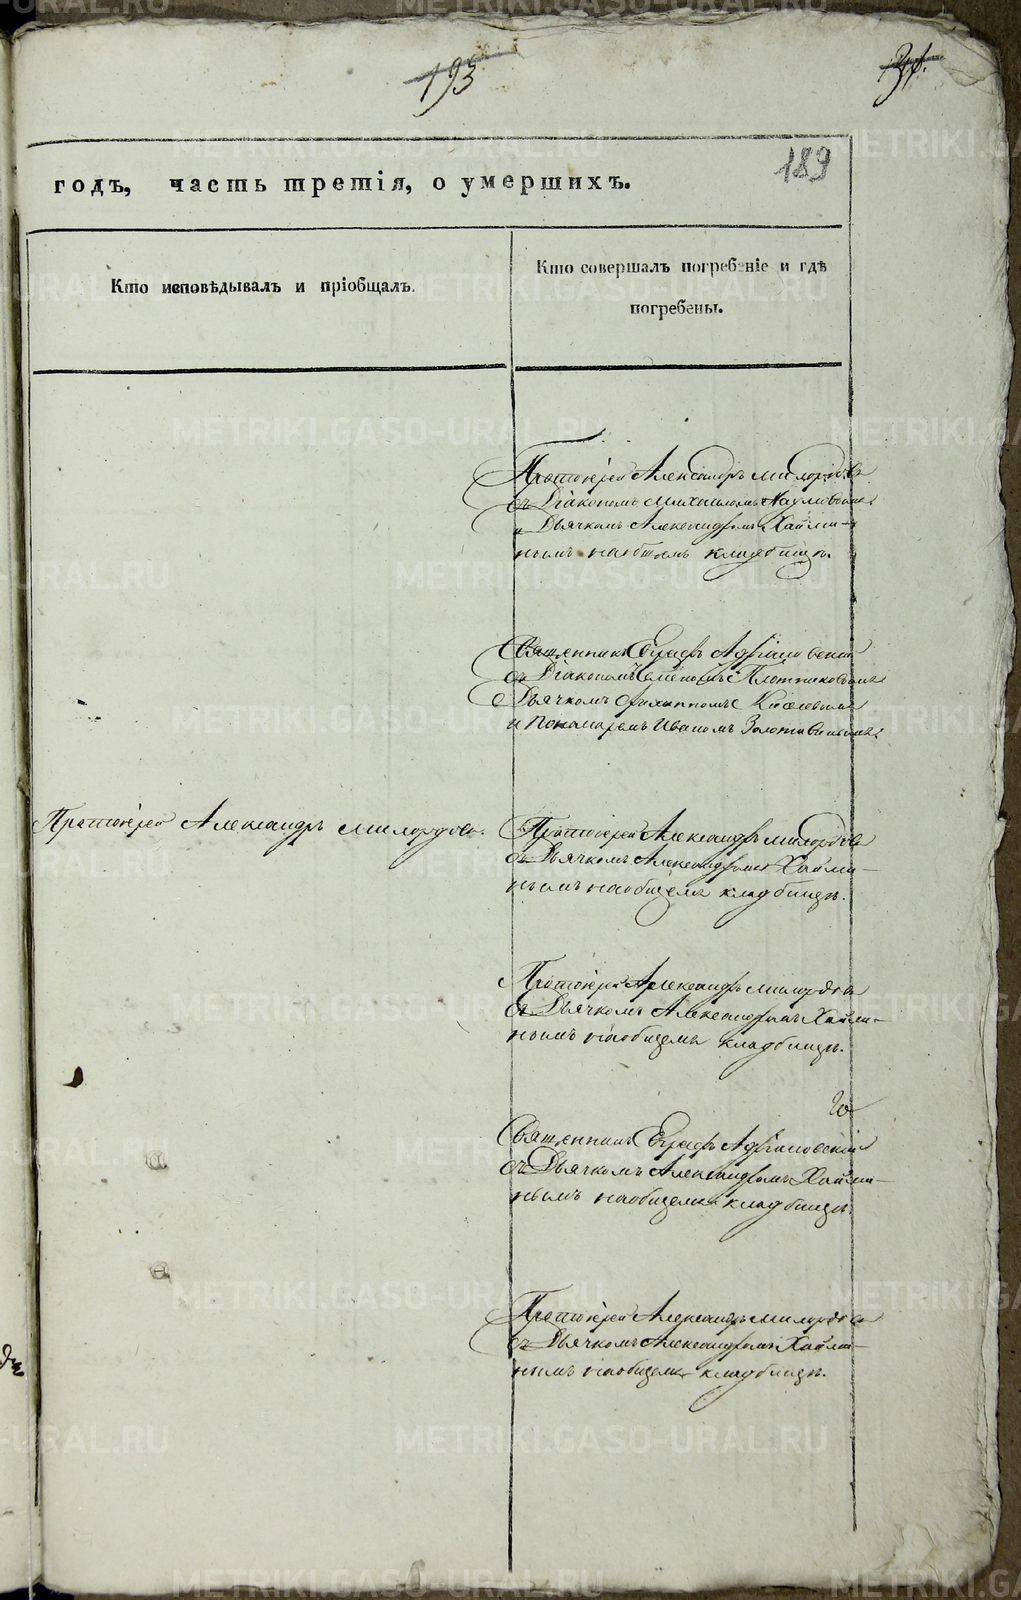 193
31.
189
годъ, часть третія, о умершихъ.
Кто исповѣдывалъ и пріобщалъ.
Кто совершалъ погребеніе и гдѣ
погребены.
Протоіерей Александръ Милордовъ
съ Діакономъ Михаиломъ Наумовымъ
и Дьячкомъ Александромъ Хайми-
нымъ на общемъ кладбищѣ.
Священникъ
съ Діакономъ Семеномъ Плотниковымъ
Дьячкомъ Киселевымъ
и Пономаремъ Иваномъ
Протоіерей Александръ Милордовъ.
Протоіерей Александръ Милордовъ
съ Дьячкомъ Александромъ Хайми-
нымъ на общемъ кладбищѣ.
Протоіерей Александръ Милордовъ
съ Дьячкомъ Александромъ Хайми-
нымъ на общемъ кладбищѣ.
Священникъ
съ Дьячкомъ Александромъ Хайми-
нымъ на общемъ кладбищѣ.
Протоіерей Александръ Милордовъ
съ Дьячкомъ Александромъ Хайми-
нымъ на общемъ кладбищѣ.
METRIKI.GASO-URAL.RU